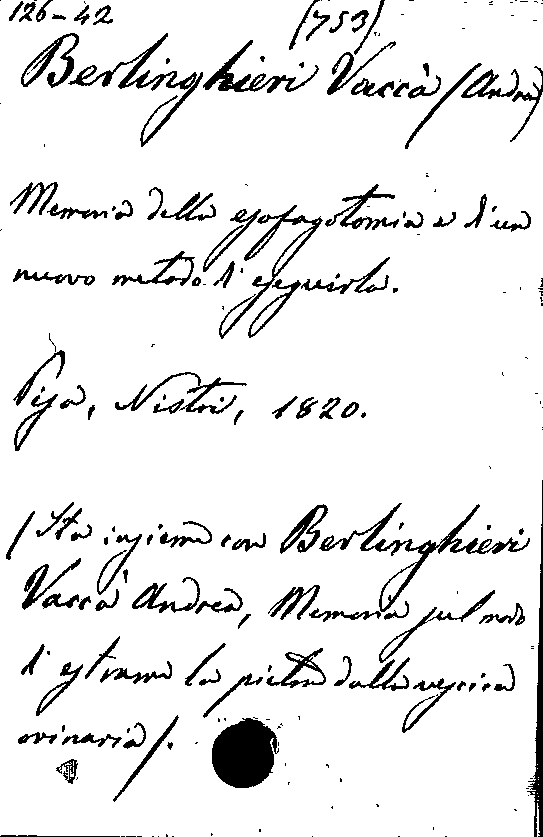 126-42 (753)
Berlinghieri Vaccà (Andrea)
Memoria della esofagotomia e d'un
nuovo metodo d'eseguirla.
Pisa, Nistri, 1820.
(Sta insieme con Berlinghieri
Vaccà Andrea, Memoria sul modo
d'estrarre la pietra dalla vescica
orinaria).